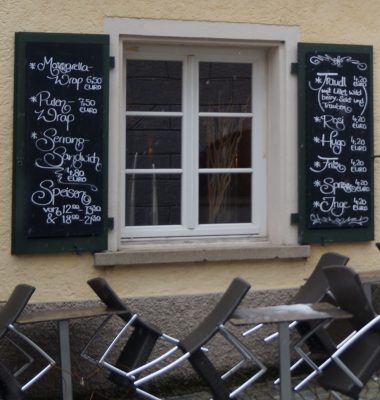 * Mozzarella-
Wrap 6.50
EURO
* Puten- 7.50
Wrap EURO
* Serrano-
Sandwich
4.80
EURO
Speisen
von 12.00-
& 18.00-21.30
* Traudl 4,20
EURO
(mit Lillet, Wild
berry, Sekt und
Trauben)
* Resi 4,20
EURO
* Hugo 4,20
EURO
* Fritz 4,20
EURO
* 4,20
EURO
* Inge 4,20
EURO